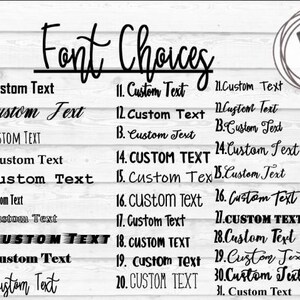 Font Choices
Custom Text
Custom Text
Custom Text
Custom Text
Custom Text
Custom Text
Custom Text
Custom Text
Custom Text
Custom Text
11. Custom Text
12. Custom Text
13. Custom Text
14. Custom Text
15. Custom Text
16. Custom Text
17. Custom Text
18. Custom Text
19. Custom Text
20. Custom Text
21. Custom Text
22. Custom Text
23. Custom Text
24. Custom Text
25. Custom Text
26. Custom Text
27. Custom Text
28. Custom Text
29. Custom Text
30. Custom Text
31. Custom Text